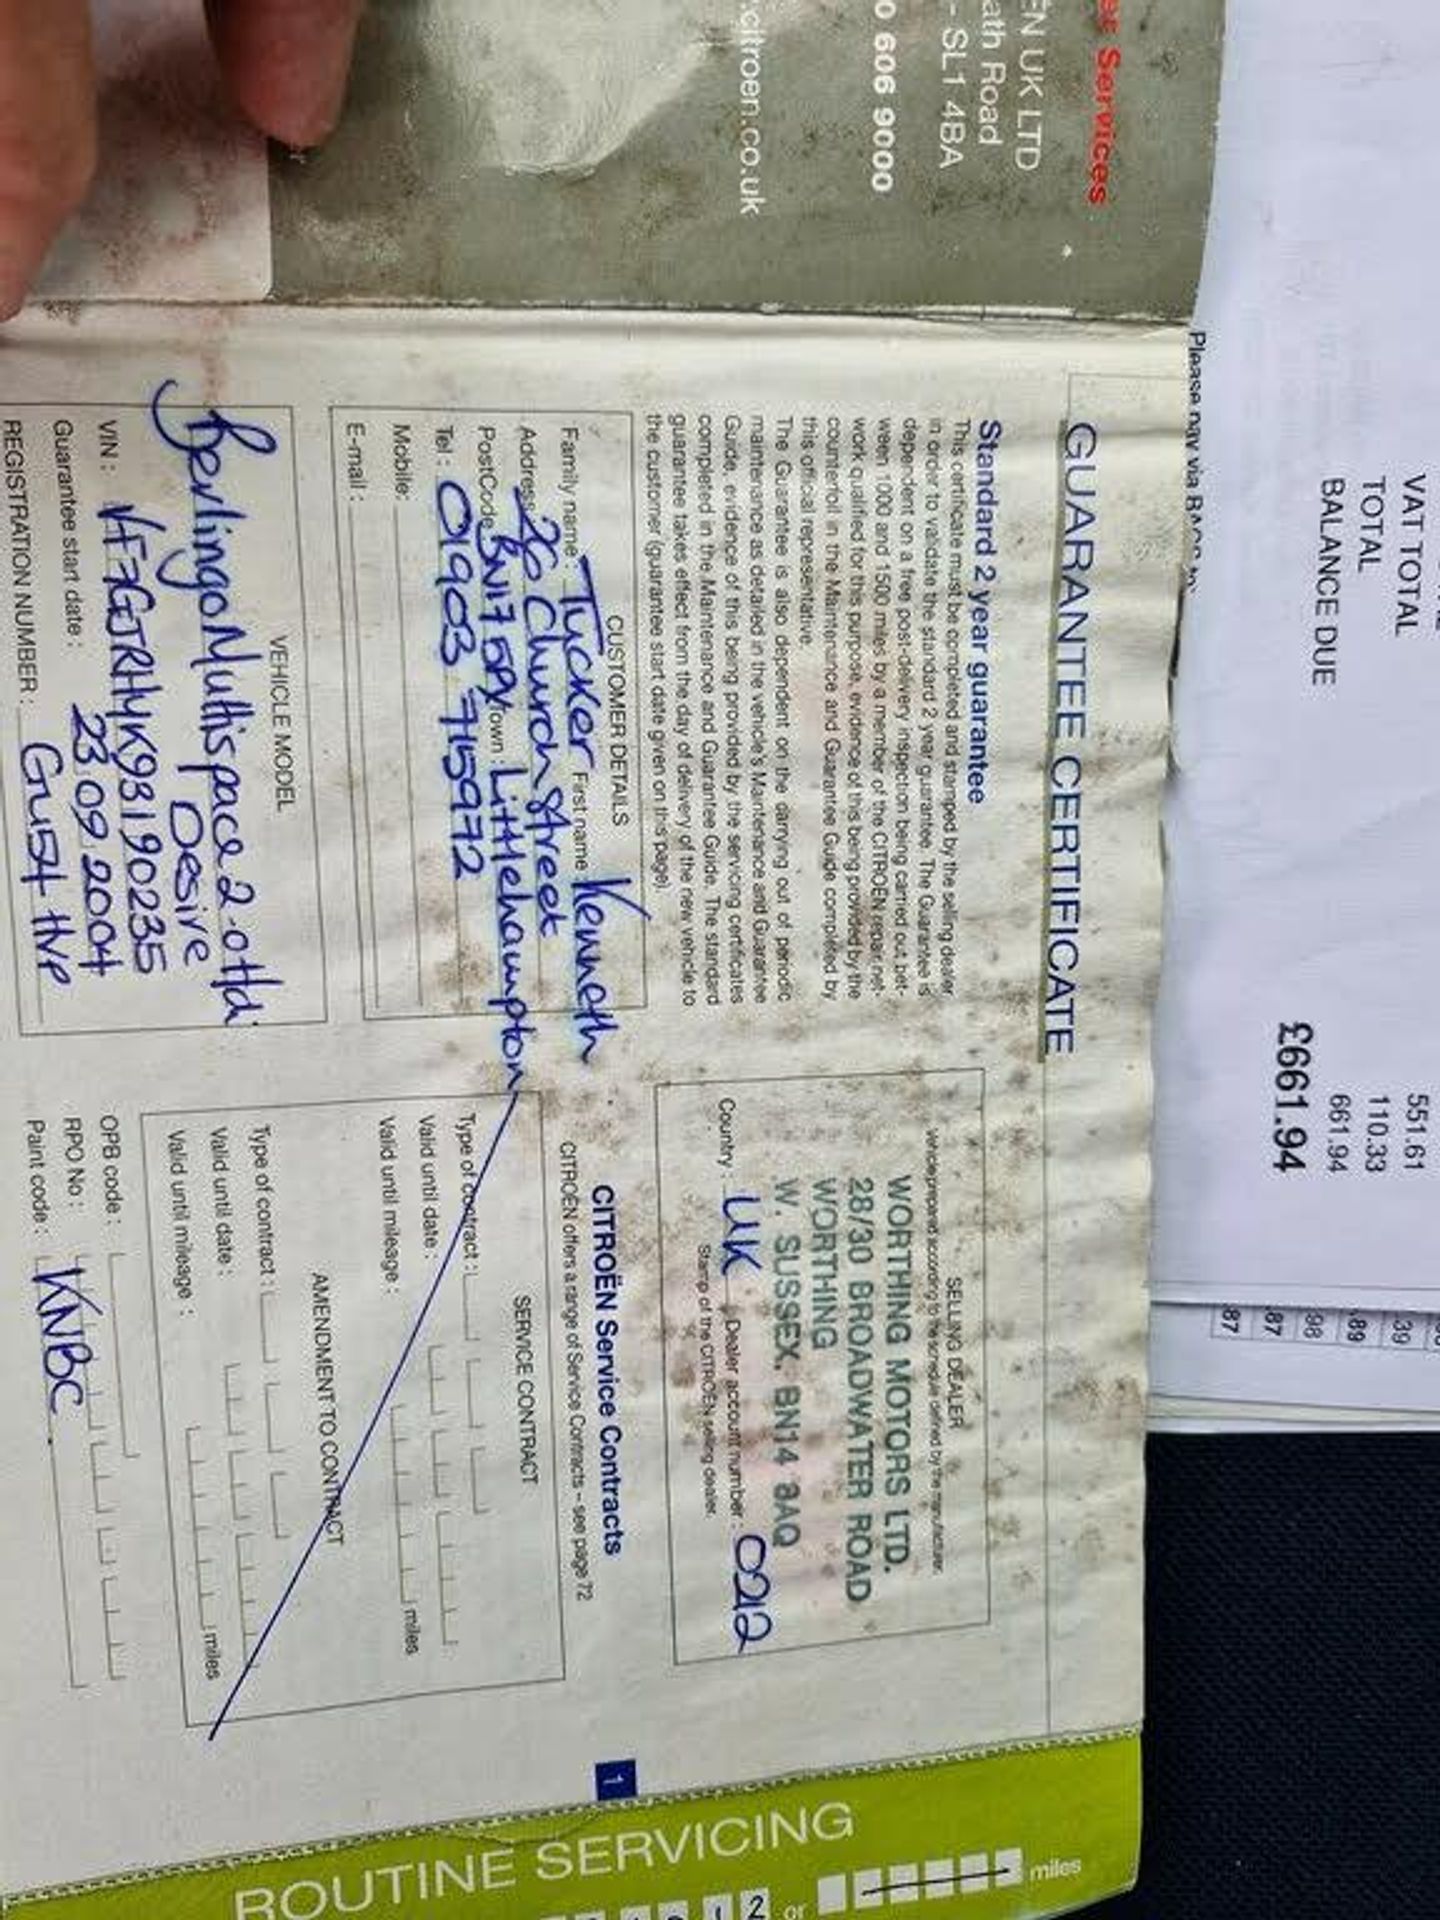 et Services
EN UK LTD
ath Road
- SL1 4BA
0 606 9000
.citroen.co.uk
VAT TOTAL 551.61
TOTAL 110.33
BALANCE DUE 661.94
£661.94
Please pay via BACS to:
GUARANTEE CERTIFICATE
Standard 2 year guarantee
This certificate must be completed and stamped by the selling dealer
in order to validate the standard 2 year guarantee. The Guarantee is
dependent on a free post-delivery inspection being carried out bet-
ween 1000 and 1500 miles by a member of the CITROËN repair net-
work qualified for this purpose, evidence of this being provided by the
counterfoil in the Maintenance and Guarantee Guide completed by
this official representative.
The Guarantee is also dependent on the carrying out of periodic
maintenance as detailed in the vehicle's Maintenance and Guarantee
Guide, evidence of this being provided by the servicing certificates
completed in the Maintenance and Guarantee Guide. The standard
guarantee takes effect from the day of delivery of the new vehicle to
the customer (guarantee start date given on this page).
CUSTOMER DETAILS
Family name: Tucker First name Kenneth
Address 26 Church Street
PostCode BN17 5PX Town: Littlehampton
Tel: 01903 715972
Mobile:
E-mail:
VEHICLE MODEL
Berlingo Multispace 2.0Hdi
Desire
VIN: VF7GJRHYK93190235
Guarantee start date: 23 09 2004
REGISTRATION NUMBER: GU54 HVP
SELLING DEALER
Vehicle prepared according to the schedule defined by the manufacturer.
WORTHING MOTORS LTD.
28/30 BROADWATER ROAD
WORTHING
W. SUSSEX. BN14 8AQ
Country: UK Dealer account number: 0212
Stamp of the CITROËN selling dealer.
CITROËN Service Contracts
CITROËN offers a range of Service Contracts – see page 72
SERVICE CONTRACT
Type of contract:
Valid until date:
Valid until mileage: miles
AMENDMENT TO CONTRACT
Type of contract:
Valid until date:
Valid until mileage: miles
OPB code:
RPO No:
Paint code: KNBC
1
ROUTINE SERVICING
12 or miles
.39
.89
.98
.87
.87